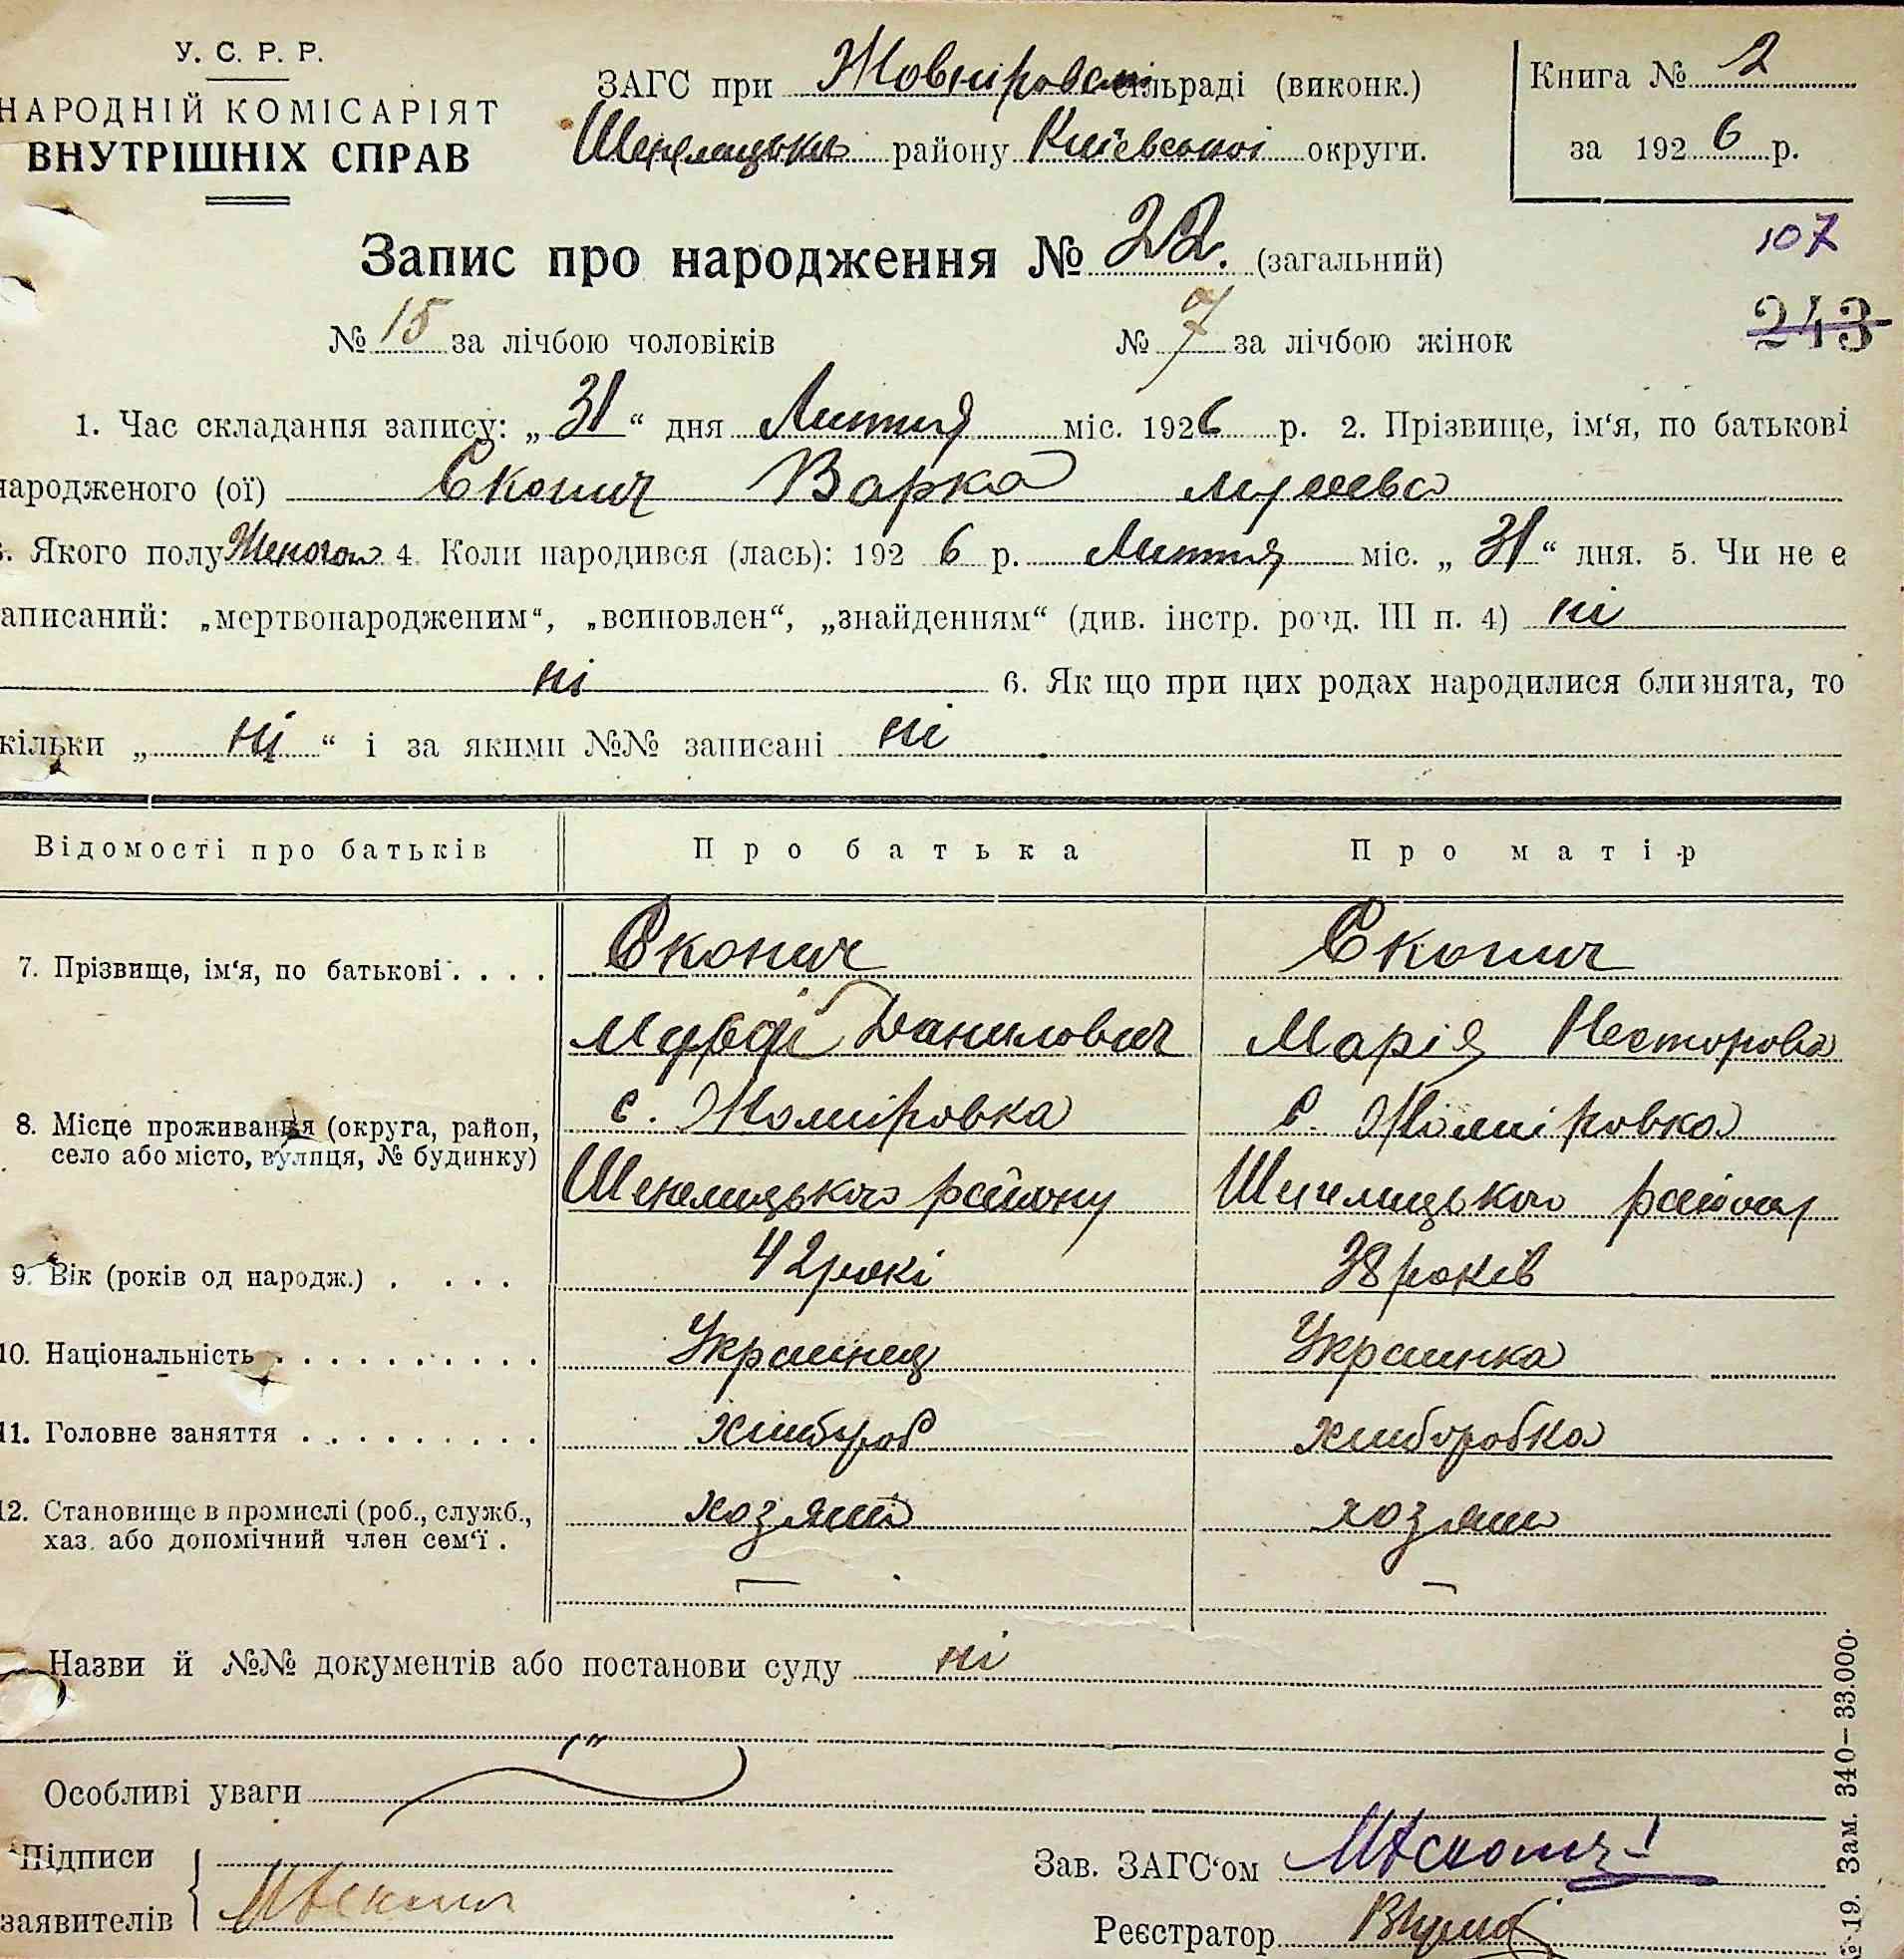 У. С. Р. Р.
НАРОДНІЙ КОМІСАРІЯТ
ВНУТРІШНІХ СПРАВ
ЗАГС при сільраді (виконк.)
району Київської округи.
Книга № 2
за 1926 р.
Запис про народження № 22. (загальний)
107
№ 15 за лічбою чоловіків № 7 за лічбою жінок
243
1. Час складання запису: „31“ дня міс. 1926 р. 2. Прізвище, ім‘я, по батькові
народженого (ої) Скопич Варка
3. Якого полу 4. Коли народився (лась): 1926 р. міс. „31“ дня. 5. Чи не є
записаний: „мертвонародженим“, „всиновлен“, „знайденням“ (див. інстр. розд. III п. 4) ні
ні 6. Як що при цих родах народилися близнята, то
кільки „ні“ і за якими №№ записані ні
Відомості про батьків Про батька Про матір
7. Прізвище, ім‘я, по батькові . . . . Скопич Скопич
Данилович Марія Несторова
8. Місце проживання (округа, район, село або місто, вулиця, № будинку) с. с.
району
9. Вік (років од народж.) . . . . 42 рокі 38 років
10. Національність . . . . . . . . . . . Українец Украинка
11. Головне заняття . . . . . . . . . хлибороб хлиборобка
12. Становище в промислі (роб., служб., хаз. або допомічний член сем‘ї . хозяин
— —
Назви й №№ документів або постанови суду ні
Особливі уваги
Підписи
заявителів
Зав. ЗАГС‘ом
Реєстратор
19. Зам. 340—33.000.